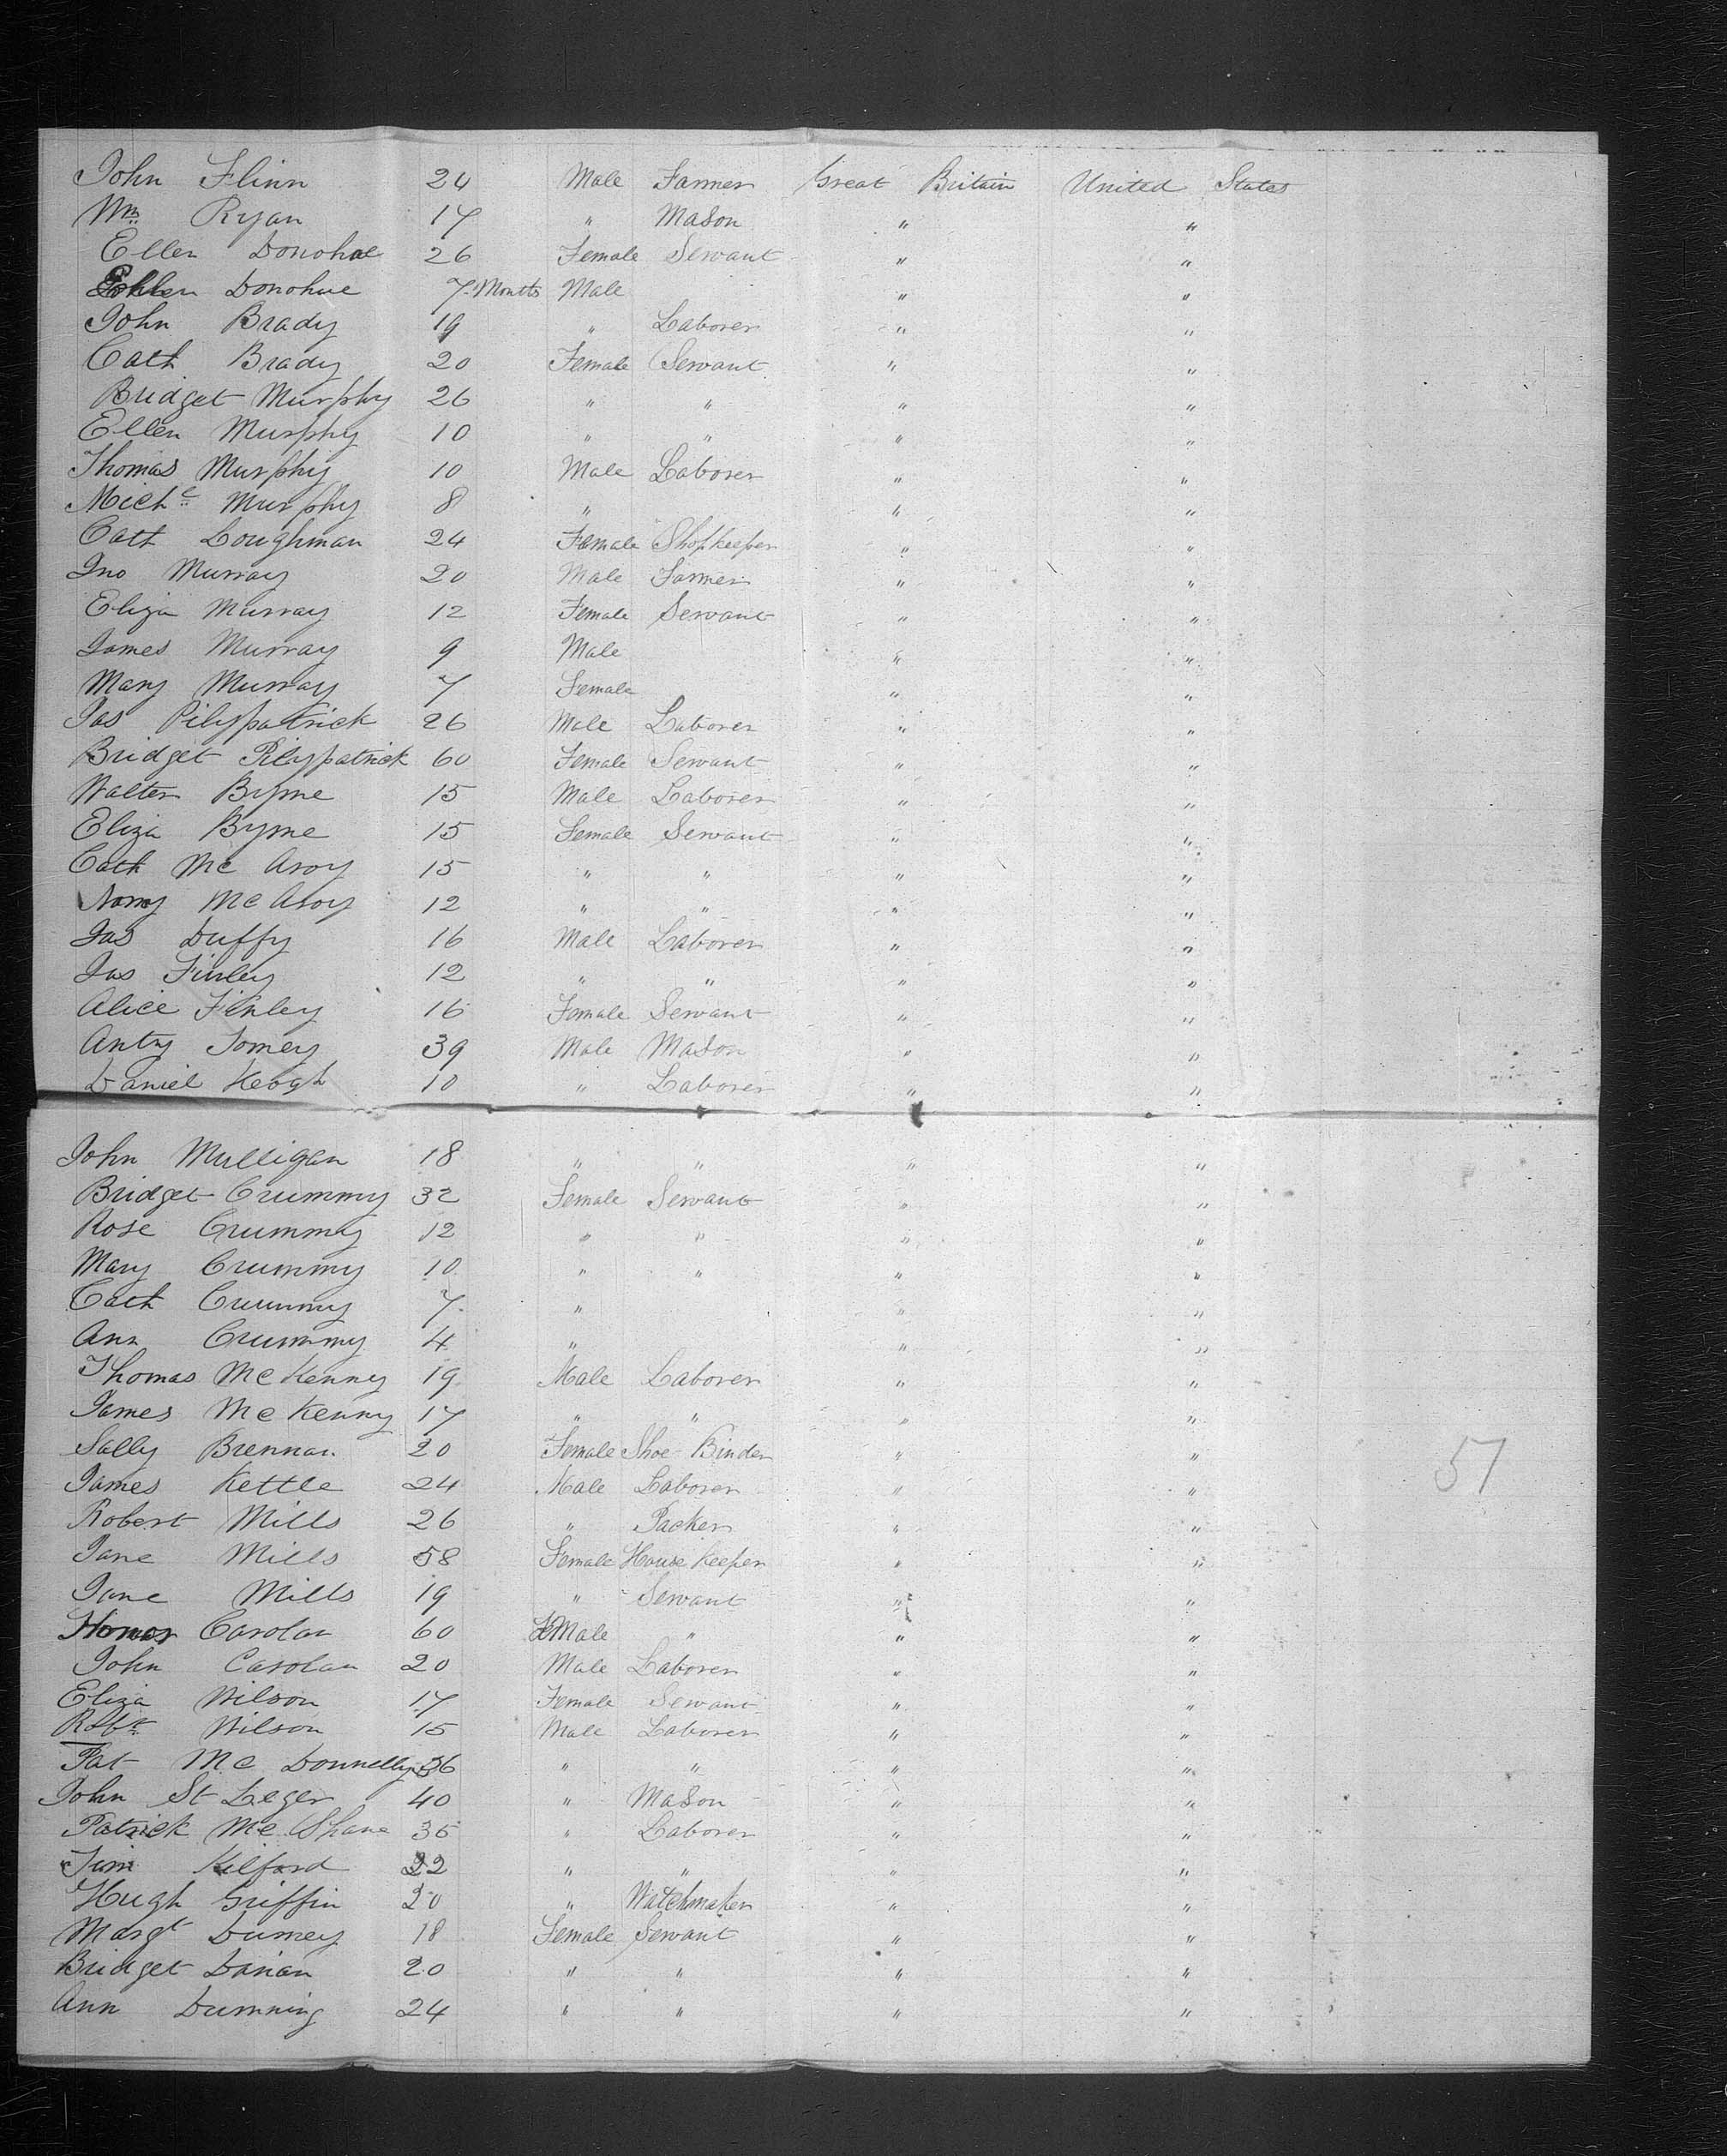 John Flinn 24 Male Farmer Great Britain United States
Wm Ryan 17 " Mason " "
Ellen Donohue 26 Female Servant " "
Donohue 7 Months Male " "
John Brady 19 " Laborer " "
Cath Brady 20 Female Servant " "
Bridget Murphy 26 " " " "
Ellen Murphy 10 " " " "
Thomas Murphy 10 Male Laborer " "
Michl Murphy 8 " " "
Cath Loughman 24 Female Shopkeeper " "
Jno Murray 20 Male Farmer " "
Eliza Murray 12 Female Servant " "
James Murray 9 Male " "
Mary Murray 7 Female " "
Jas 26 Male Laborer " "
Bridget 60 Female Servant " "
Walter Byrne 15 Male Laborer " "
Eliza Byrne 15 Female Servant " "
Cath Mc Avoy 15 " " " "
Mc Avoy 12 " " " "
Jas Duffy 16 Male Laborer " "
Jas Finley 12 " " " "
Alice Finley 16 Female Servant " "
Anty Tomey 39 Male Mason " "
Daniel Keogh 10 " Laborer " "
John Mulligan 18 " " " "
Bridget Crummy 32 Female Servant " "
Rose Crummy 12 " " " "
Mary Crummy 10 " " " "
Cath Crummy 7 " " "
Ann Crummy 4 " " "
Thomas McKenny 19 Male Laborer " "
James McKenny 17 " " " "
Sally Brennan 20 Female Shoe Binder " "
James Kettle 24 Male Laborer " "
Robert Mills 26 " Packer " "
Jane Mills 58 Female House Keeper " "
Jane Mills 19 " Servant " "
Honor Carolan 60 FeMale " " "
John Carolan 20 Male Laborer " "
Eliza Wilson 17 Female Servant " "
Robt Wilson 15 Male Laborer " "
Pat Mc Donnelly 36 " " " "
John St Leger 40 " Mason " "
Patrick Mc Shane 35 " Laborer " "
Jim Kilford 22 " " " "
Hugh Griffin 20 " Watchmaker " "
Margt 18 Female Servant " "
Bridget 20 " " " "
Ann Dumning 24 " " " "
57